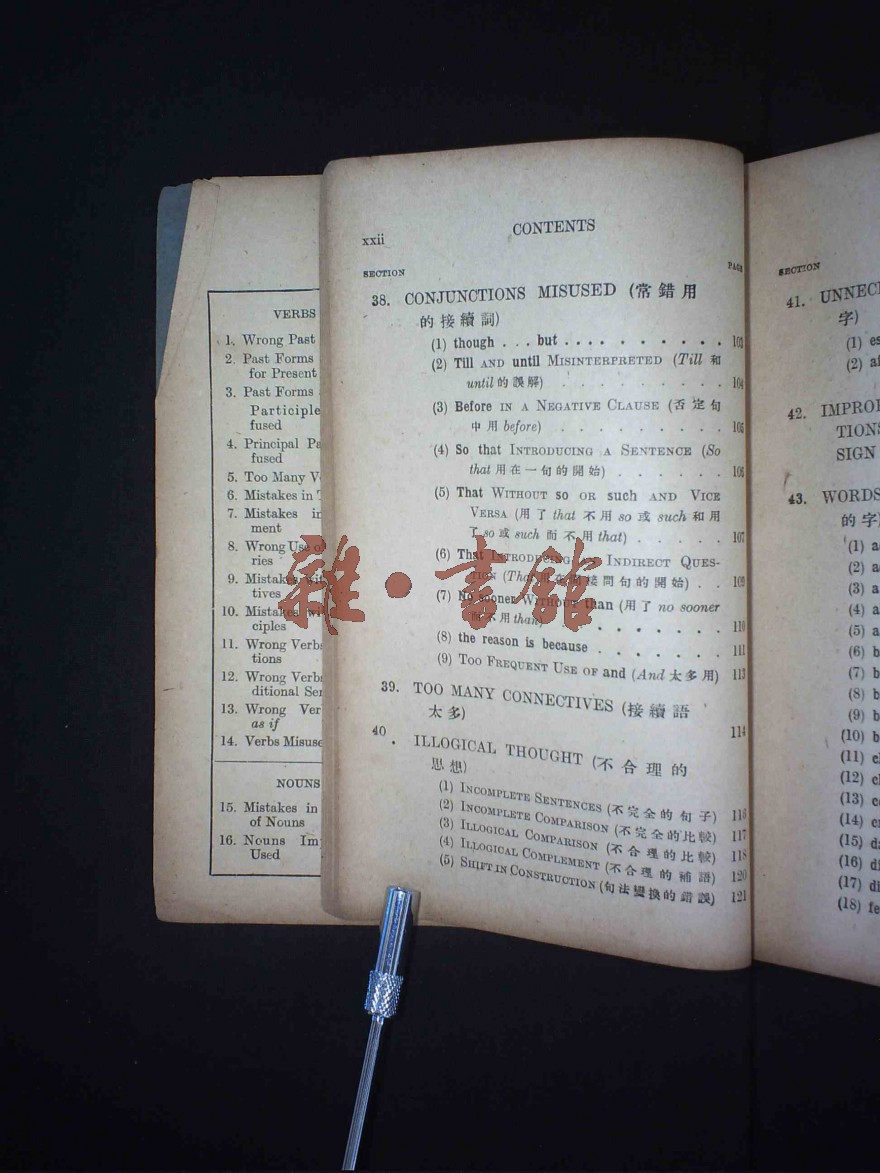 VERBS
1. Wrong Past
2. Past Forms
for Present
3. Past Forms
Participle
fused
4. Principal Pa
fused
5. Too Many V
6. Mistakes in T
7. Mistakes in
ment
8. Wrong Use of
ries
9. Mistakes wit
tives
10. Mistakes wi
ciples
11. Wrong Verbs
tions
12. Wrong Verbs
ditional Sen
13. Wrong Ver
as if
14. Verbs Misuse
NOUNS
15. Mistakes in
of Nouns
16. Nouns Im
Used
xxii
CONTENTS
SECTION
PAGE
38. CONJUNCTIONS MISUSED (常錯用
的接續詞)
(1) though . . . but . . . . . . . . . . 103
(2) Till AND until MISINTERPRETED (Till 和
until 的誤解) . . . . . . . . . 104
(3) Before IN A NEGATIVE CLAUSE (否定句
中用 before) . . . . . . . . . 105
(4) So that INTRODUCING A SENTENCE (So
that 用在一句的開始) . . . . . . 106
(5) That WITHOUT so OR such AND VICE
VERSA (用了 that 不用 so 或 such 和用
了 so 或 such 而不用 that) . . . . . 107
(6) That INTRODUCING INDIRECT QUES-
TION (That 用在間接問句的開始) . . 109
(7) No sooner WITHOUT than (用了 no sooner
而不用 than) . . . . . . . 110
(8) the reason is because . . . . . . . 111
(9) TOO FREQUENT USE OF and (And 太多用) 113
39. TOO MANY CONNECTIVES (接續語
太多) 114
40. ILLOGICAL THOUGHT (不合理的
思想)
(1) INCOMPLETE SENTENCES (不完全的句子) 116
(2) INCOMPLETE COMPARISON (不完全的比較) 117
(3) ILLOGICAL COMPARISON (不合理的比較) 118
(4) ILLOGICAL COMPLEMENT (不合理的補語) 120
(5) SHIFT IN CONSTRUCTION (句法變換的錯誤) 121
SECTION
41. UNNEC
字)
(1) es
(2) af
42. IMPROP
TIONS
SIGN
43. WORDS
的字)
(1) a
(2) a
(3) a
(4) a
(5) a
(6) b
(7) b
(8) b
(9) b
(10) b
(11) c
(12) c
(13) c
(14) c
(15) d
(16) di
(17) di
(18) fe
雜·書館